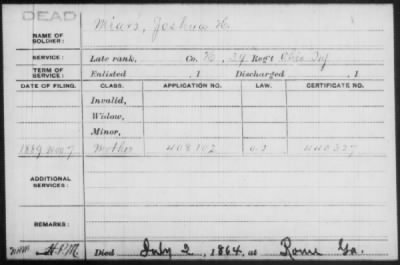 DEAD
NAME OF SOLDIER: Miars, Joshua H.
SERVICE: Late rank, Co. H, 29 Reg't Ohio Inf
TERM OF SERVICE: Enlisted , 1 Discharged , 1
DATE OF FILING. CLASS. APPLICATION NO. LAW. CERTIFICATE NO.
Invalid,
Widow,
Minor,
1889 Nov. 7 Mother 408102
ADDITIONAL SERVICES:
REMARKS:
Died July 2, 1864, at Rome Ga.